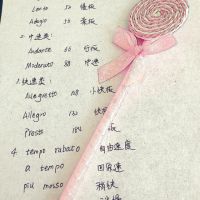 Lento 50 慢板
Adagio 56 柔板
2. 中速类:
Andante 66 行板
Moderato 88 中速
3. 快速类:
Allegretto 108 小快板
Allegro 132 快板
Presto 184 板
4. tempo rubato 自由速度
a tempo 回原速
più mosso 稍快